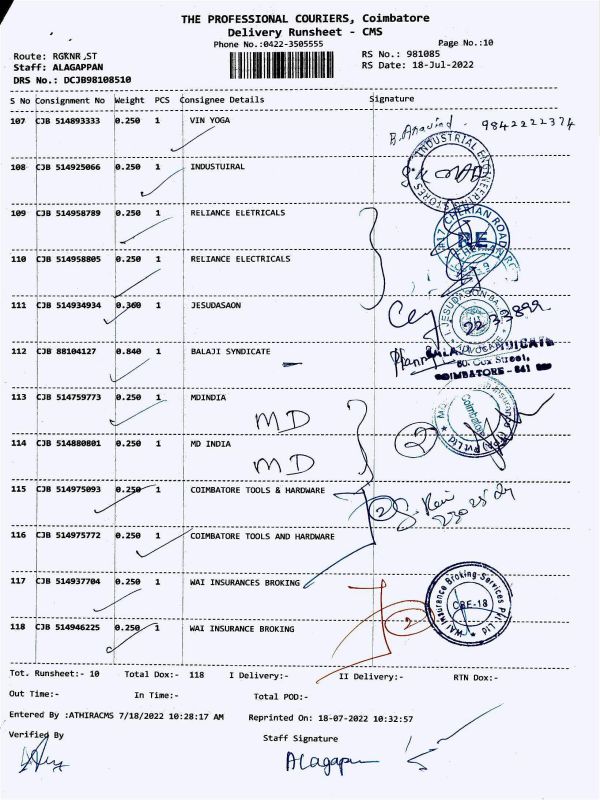 THE PROFESSIONAL COURIERS, Coimbatore
Delivery Runsheet - CMS
Phone No.:0422-3505555
Page No.:10
Route: RGKNR ,ST
RS No.: 981085
Staff: ALAGAPPAN
RS Date: 18-Jul-2022
DRS No.: DCJB98108510
S No Consignment No Weight PCS Consignee Details Signature
107 CJB 514893333 0.250 1 VIN YOGA
9842222374
108 CJB 514925066 0.250 1 INDUSTUIRAL
INDUSTRIAL ENGINEERING STORES
109 CJB 514958789 0.250 1 RELIANCE ELETRICALS
RE
110 CJB 514958805 0.250 1 RELIANCE ELECTRICALS
111 CJB 514934934 0.360 1 JESUDASAON
112 CJB 88104127 0.840 1 BALAJI SYNDICATE
COIMBATORE - 641
113 CJB 514759773 0.250 1 MDINDIA
MD
Coimbatore
2
114 CJB 514880801 0.250 1 MD INDIA
MD
115 CJB 514975093 0.250 1 COIMBATORE TOOLS & HARDWARE
2
116 CJB 514975772 0.250 1 COIMBATORE TOOLS AND HARDWARE
117 CJB 514937704 0.250 1 WAI INSURANCES BROKING
WAI Insurance Broking Services Pvt. Ltd
CBE-18
2
118 CJB 514946225 0.250 1 WAI INSURANCE BROKING
Tot. Runsheet:- 10 Total Dox:- 118 I Delivery:- II Delivery:- RTN Dox:-
Out Time:- In Time:- Total POD:-
Entered By :ATHIRACMS 7/18/2022 10:28:17 AM Reprinted On: 18-07-2022 10:32:57
Verified By Staff Signature